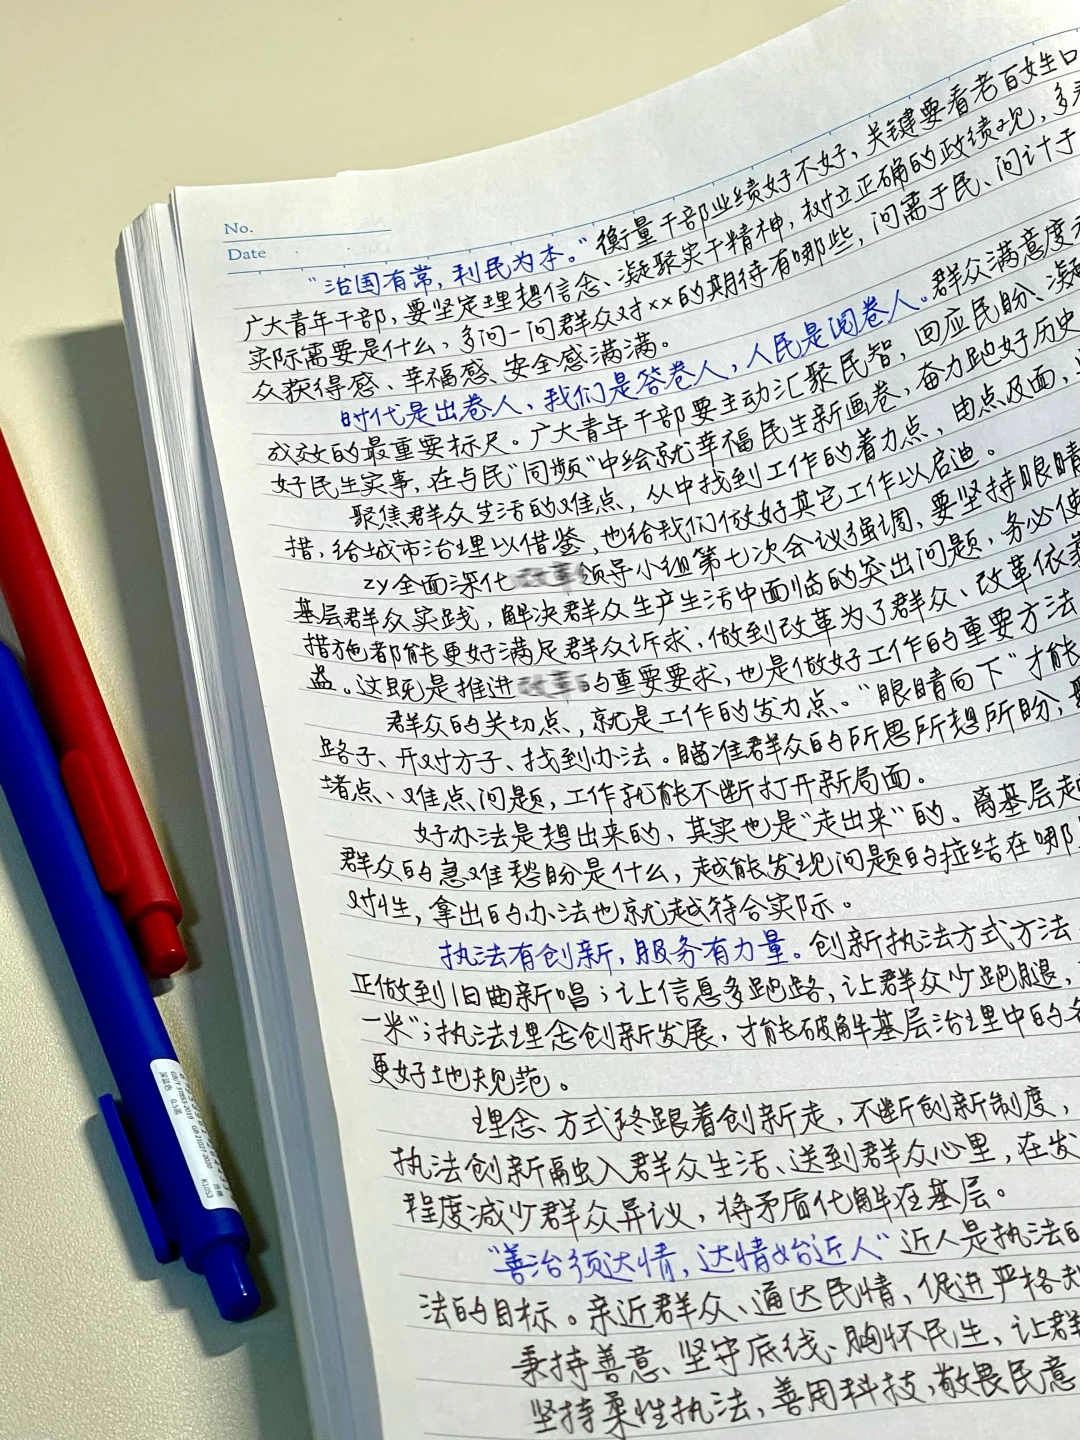 No.
Date
“治国有常，利民为本。”衡量干部业绩好不好，关键要看老百姓口
广大青年干部，要坚定理想信念、凝聚实干精神，树立正确的政绩观，多
实际需要是什么，多问一问群众对xx的期待有哪些，问需于民、问计于
众获得感、幸福感、安全感满满。
时代是出卷人，我们是答卷人，人民是阅卷人。群众满意度
成效的最重要标尺。广大青年干部要主动汇聚民智，回应民盼、凝
好民生实事，在与民“同频”中绘就幸福民生新画卷，奋力跑好历史
聚焦群众生活的难点，从中找到工作的着力点，由点及面，
措，给城市治理以借鉴，也给我们做好其它工作以启迪。
zy全面深化改革领导小组第七次会议强调，要坚持眼睛
基层群众实践，解决群众生产生活中面临的突出问题，务必使
措施都能更好满足群众诉求，做到改革为了群众、改革依靠
益。这既是推进改革的重要要求，也是做好工作的重要方法
群众的关切点，就是工作的发力点。“眼睛向下”才能
路子、开对方子、找到办法。瞄准群众的所思所想所盼，
堵点、难点问题，工作就能不断打开新局面。
好办法是想出来的，其实也是“走出来”的。离基层越
群众的急难愁盼是什么，越能发现问题的症结在哪
对性，拿出的办法也就越符合实际。
执法有创新，服务有力量。创新执法方式方法
正做到旧曲新唱；让信息多跑路，让群众少跑腿，
一米”；执法理念创新发展，才能破解基层治理中的
更好地规范。
理念、方式终跟着创新走，不断创新制度，
执法创新融入群众生活、送到群众心里，在发
程度减少群众异议，将矛盾化解在基层。
“善治须达情，达情始近人”近人是执法的
法的目标。亲近群众、通达民情、促进严格规
秉持善意、坚守底线、胸怀民生、让群
坚持柔性执法，善用科技，敬畏民意
深蓝色 0.5㎜
GB/T 37853-2019 GB 21027-2020
K1053